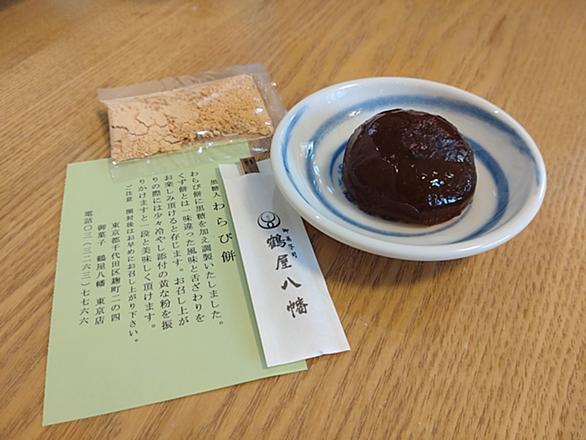 黒糖入 わらび餅
わらび餅に黒糖を加え調製いたしました。
くず餅とは一味違った風味と舌ざわりを
お楽しみ頂けると存じます。お召し上が
りの際には少々冷やし添付の黄な粉を振
りかけますと一段と美味しく頂けます。
ご注意 開封後はお早めにお召し上がり下さい。
東京都千代田区麹町二の四
御菓子 鶴屋八幡 東京店
電話〇三(三二六三)七七六六
御菓子司
鶴屋八幡